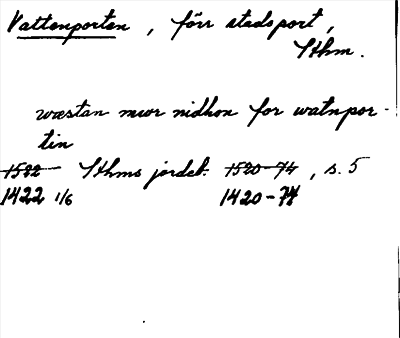 Vattenporten, förr stadsport,
Sthm.
wæstan mwr nidhon for watnpor-
tin
1582 Sthms jordeb. 1520-74, s. 5
1422 1/6 1420-74